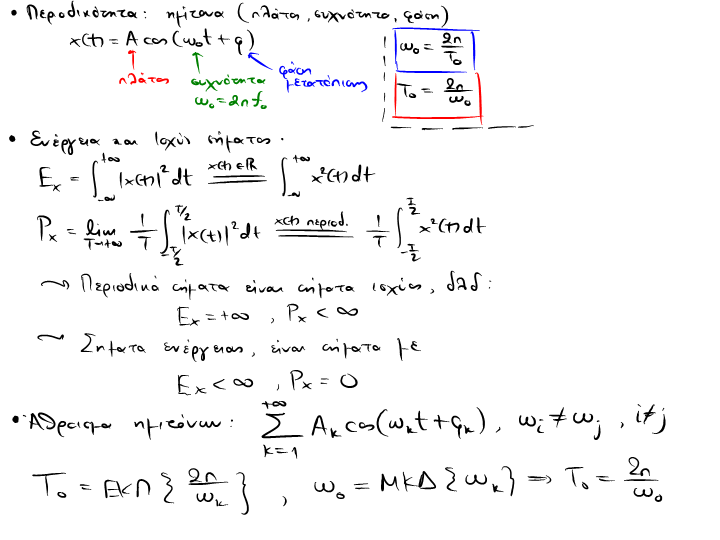 • Περιοδικότητα: ημίτονα (πλάτος, συχνότητα, φάση)
x(t) = A cos(ω₀t + φ)
πλάτος συχνότητα φάση μετατόπισης
ω₀ = 2π f₀
ω₀ = 2π/T₀
T₀ = 2π/ω₀
• Ενέργεια και Ισχύς σήματος.
Eₓ = ∫_{-∞}^{+∞} |x(t)|² dt =^{x(t) ∈ ℝ} ∫_{-∞}^{+∞} x²(t) dt
Pₓ = lim_{T→+∞} 1/T ∫_{-T/2}^{T/2} |x(t)|² dt =^{x(t) περιοδ.} 1/T ∫_{-T/2}^{T/2} x²(t) dt
~> Περιοδικά σήματα είναι σήματα ισχύος, δλδ:
Eₓ = +∞ , Pₓ < ∞
~ Σήματα ενέργειας, είναι σήματα με
Eₓ < ∞ , Pₓ = 0
• Άθροισμα ημιτόνων: ∑_{k=1}^{+∞} Aₖ cos(ωₖt + φₖ), ωᵢ ≠ ωⱼ , i≠j
T₀ = ΕΚΠ {2π/ωₖ} , ω₀ = ΜΚΔ {ωₖ} ⇒ T₀ = 2π/ω₀